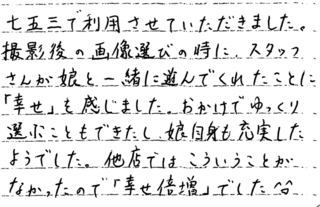 七五三で利用させていただきました。
撮影後の画像選びの時に、スタッフ
さんが娘と一緒に遊んでくれたことに
「幸せ」を感じました。おかげでゆっくり
選ぶこともできたし、娘自身も充実した
ようでした。他店ではこういうことが
なかったので「幸せ倍増」でした^^